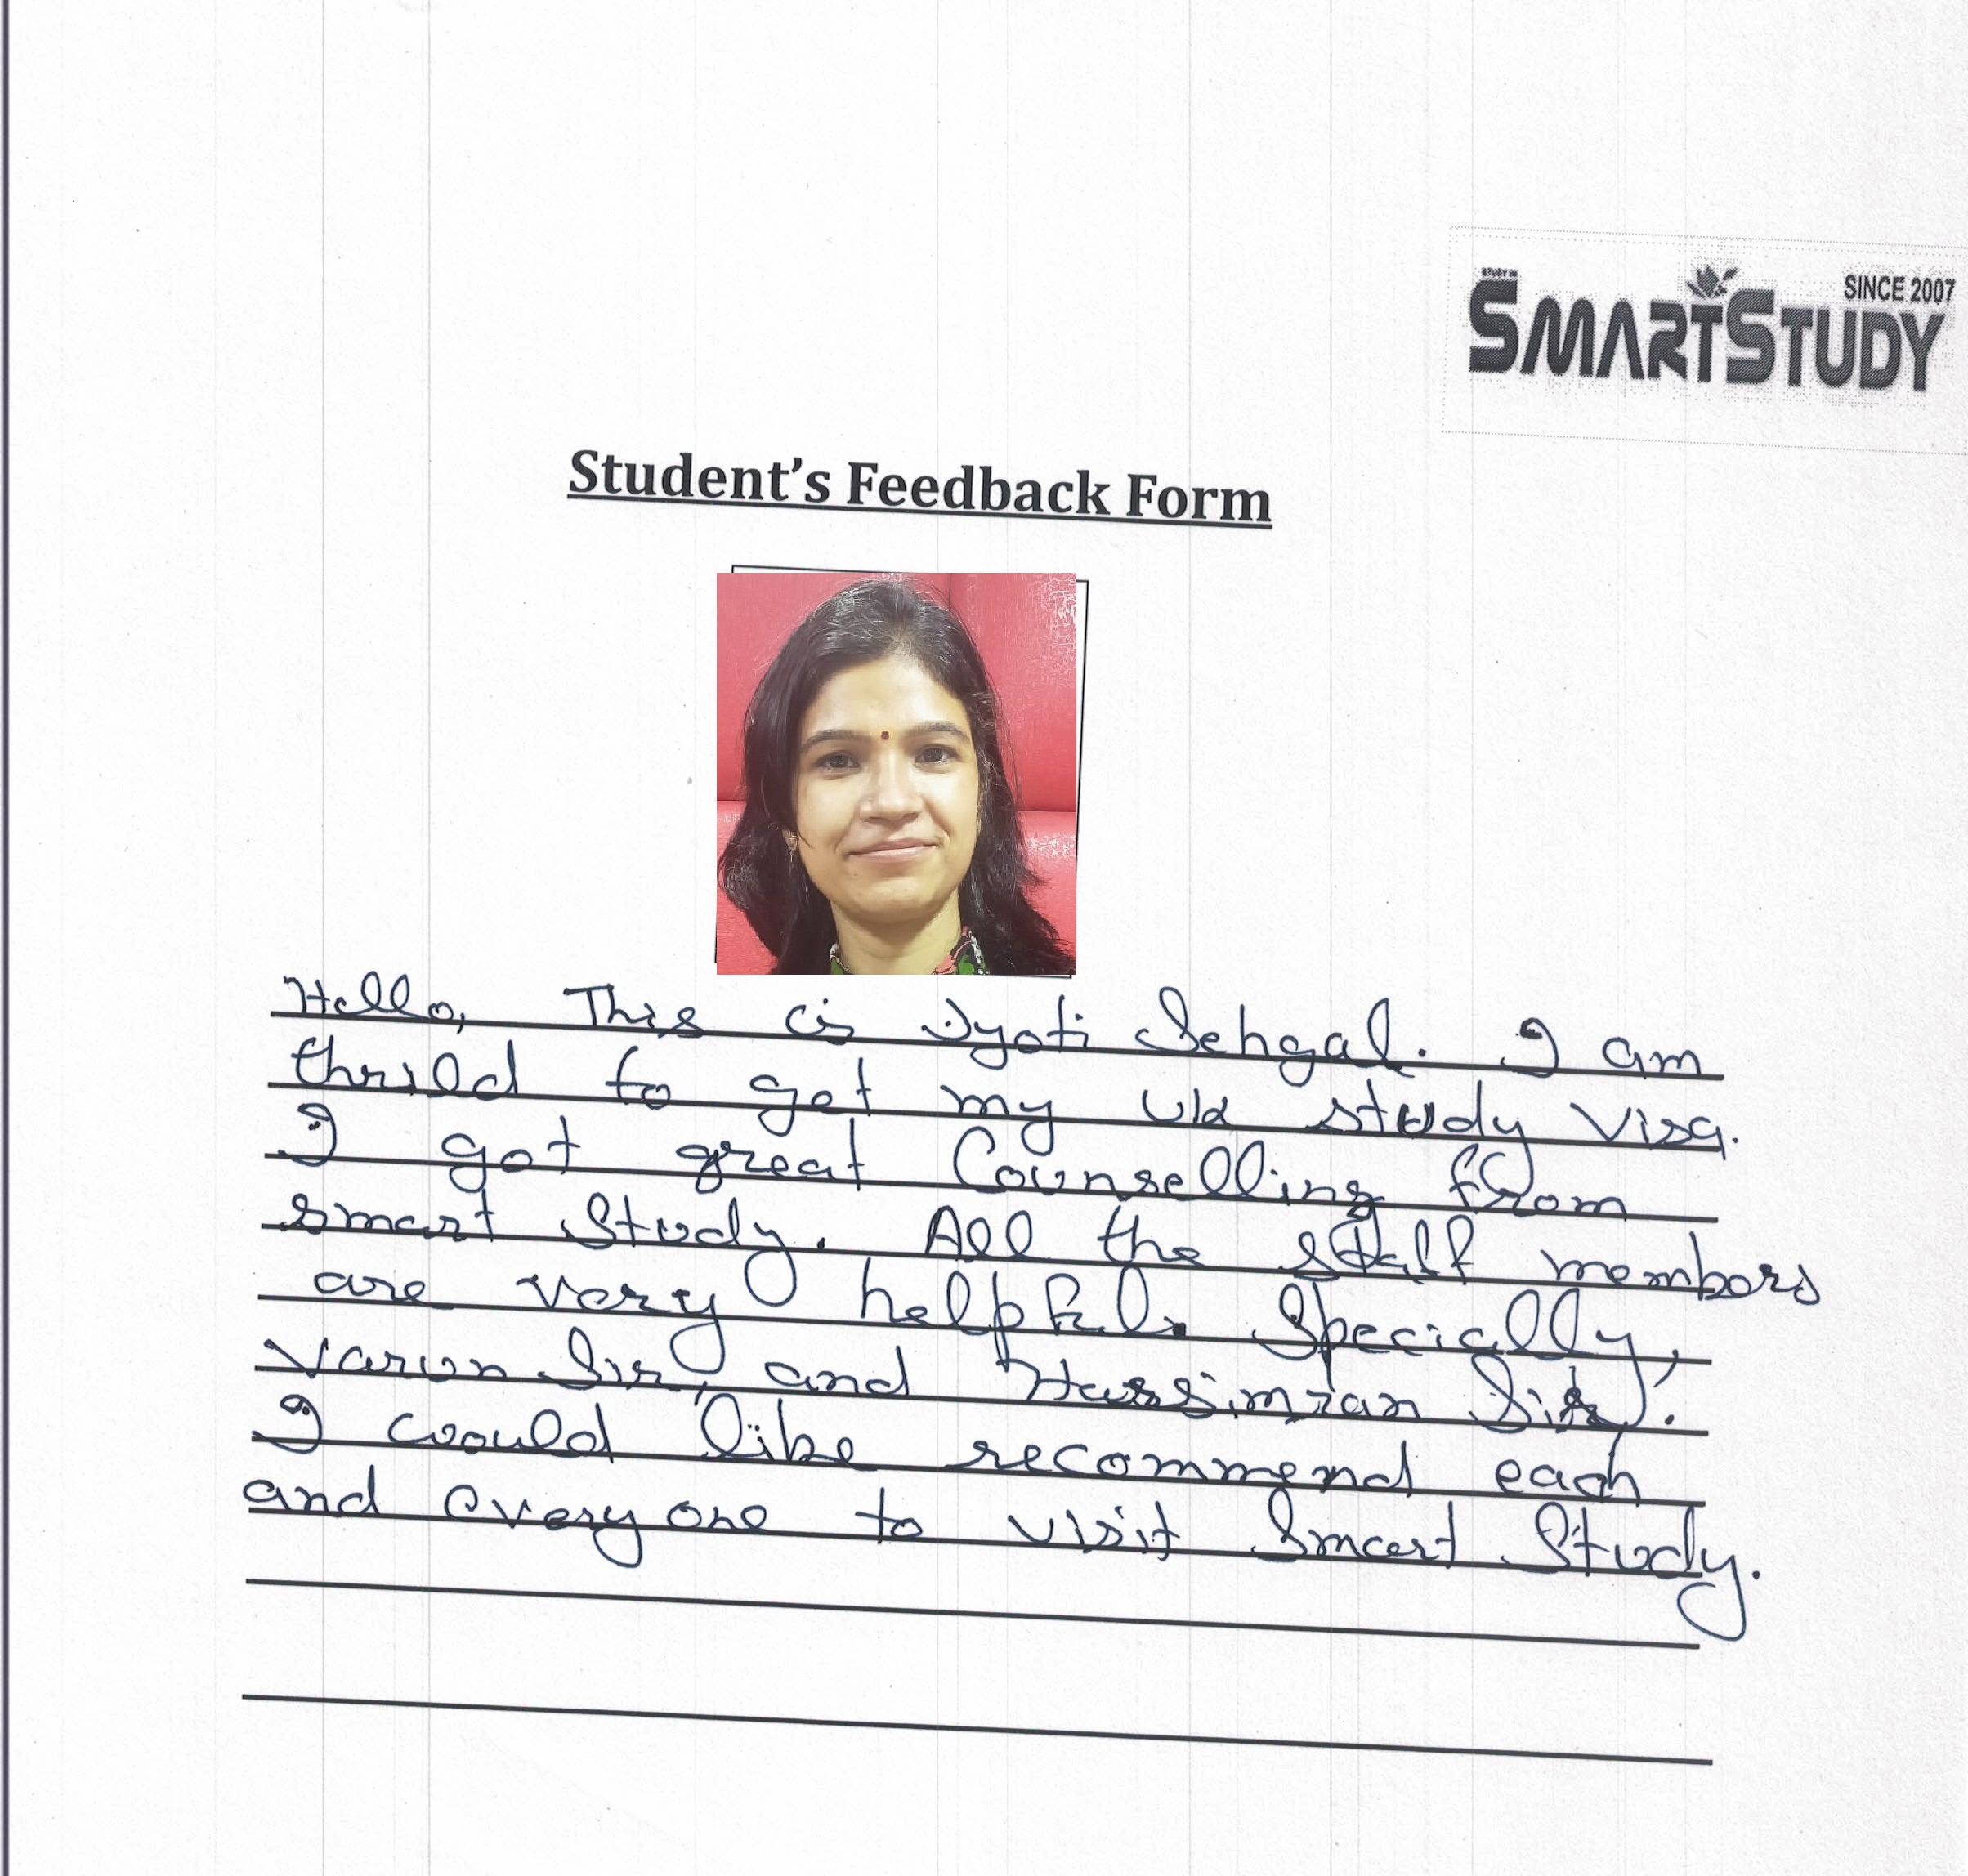 STUDY IN
SINCE 2007
SMARTSTUDY
Student's Feedback Form
Hello, This is Jyoti Sehgal. I am
thrild to get my UK study visa.
I got great Counselling from
smart Study. All the staff members
are very helpful. Specially,
Varun Sir, and Harsimran Sir.
I would like recommend each
and everyone to visit Smart Study.